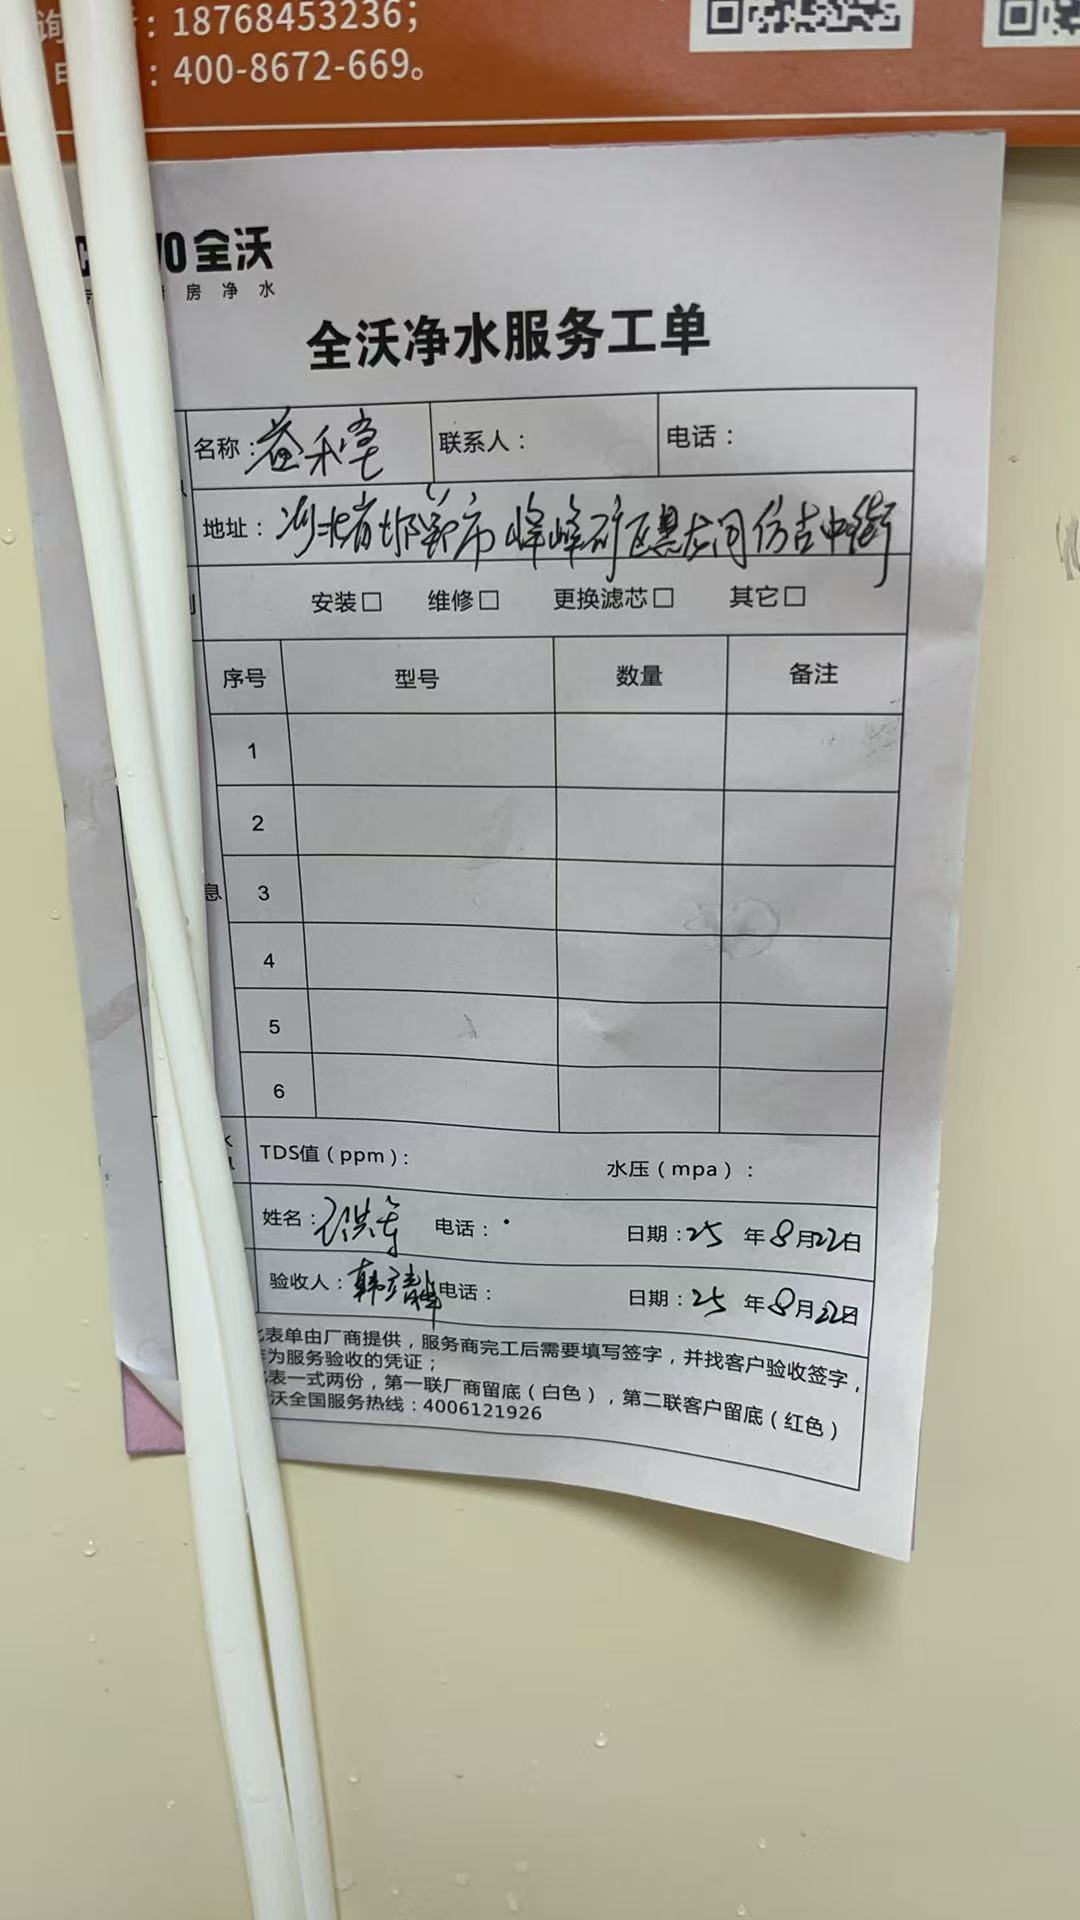 询
: 18768453236;
: 400-8672-669。
VO 全沃
房净水
全沃净水服务工单
名称: 益禾堂 联系人: 电话:
地址: 河北省邯郸市峰峰矿区黑龙洞仿古中街
安装□ 维修□ 更换滤芯□ 其它□
序号 型号 数量 备注
1
2
3
息
4
5
6
TDS值(ppm): 水压(mpa):
姓名: 电话: 日期: 25 年 8 月 22 日
验收人: 韩立静 电话: 日期: 25 年 8 月 22 日
表单由厂商提供,服务商完工后需要填写签字,并找客户验收签字,
为服务验收的凭证;
表一式两份,第一联厂商留底(白色),第二联客户留底(红色)
沃全国服务热线:4006121926